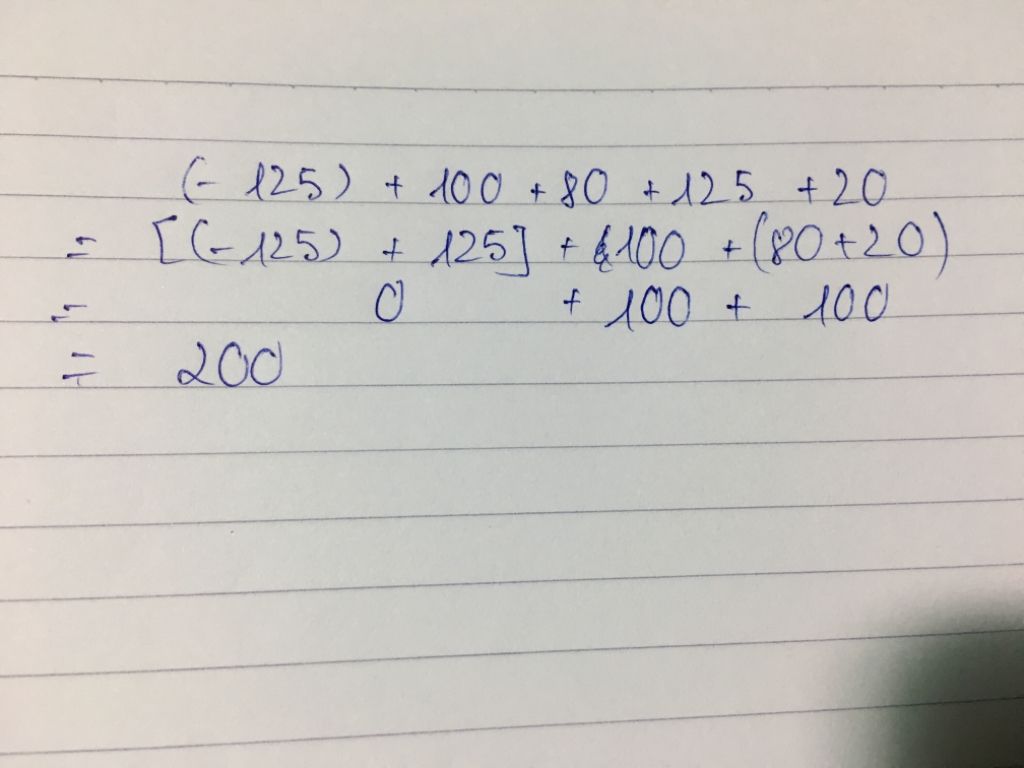 (- 125) + 100 + 80 + 125 + 20
= [(-125) + 125] + 100 + (80+20)
= 0 + 100 + 100
= 200